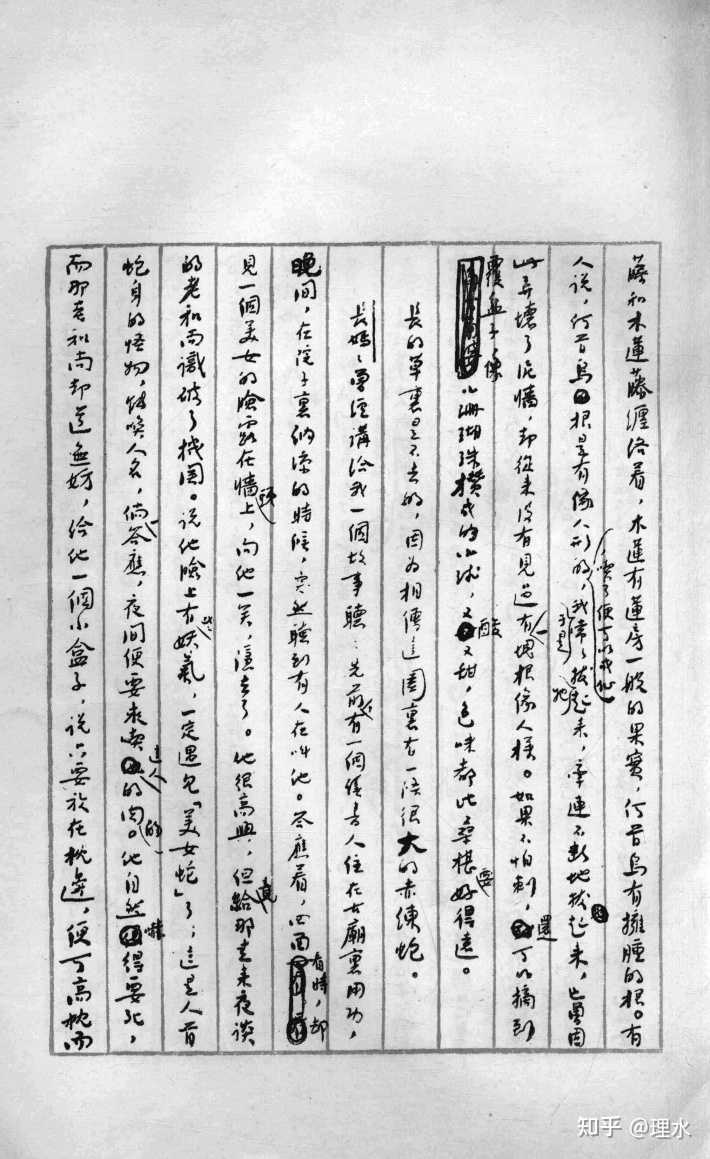 藤和木蓮藤纏絡着，木蓮有蓮房一般的果實，何首烏有擁腫的根。有
人说，何首烏根是有像人形的，喫了便可以成仙，我于是常常拔它起来，牽連不斷地拔起来，也曾因
此弄壞了泥牆，却從来沒有見過有一塊根像人樣。如果不怕刺，還可以摘到
覆盆子，像小珊瑚珠攢成的小球，又酸又甜，色味都比桑椹要好得遠。
長的草裏是不去的，因为相傳這園裏有一條很大的赤練蛇。
長媽媽曾經講给我一個故事聽：先前，有一個讀書人住在古廟裏用功，
晚間，在院子裏纳凉的時候，突然聽到有人在叫他。答應着，四面看時，却
見一個美女的臉露在牆頭上，向他一笑，隱去了。他很高興；但竟給那走来夜談
的老和尚識破了機関。说他臉上有些妖氣，一定遇見「美女蛇」了；這是人首
蛇身的怪物，能喚人名，倘一答應，夜間便要来喫這人的肉的。他自然嚇得要死，
而那老和尚却道無妨，给他一個小盒子，说只要放在枕邊，便可高枕而
知乎 @理水